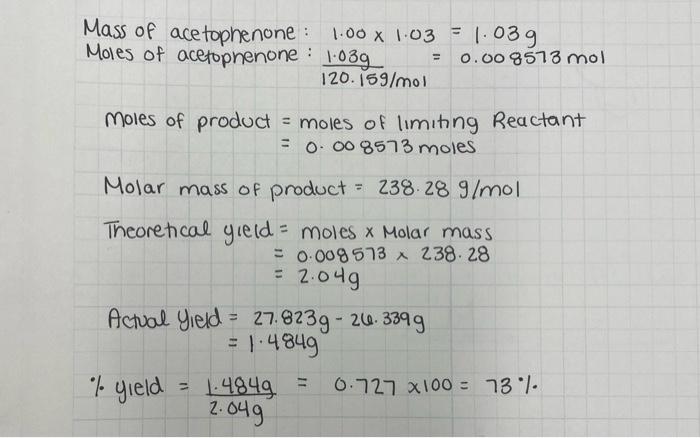 Mass of acetophenone : 1.00 x 1.03 = 1.03g
Moles of acetophenone : 1.03g / 120.15g/mol = 0.008573 mol
Moles of product = moles of limiting Reactant
= 0.008573 moles
Molar mass of product = 238.28 g/mol
Theoretical yield = moles x Molar mass
= 0.008573 x 238.28
= 2.04g
Actual Yield = 27.823g - 26.339g
= 1.484g
% yield = 1.484g / 2.04g = 0.727 x100 = 73%